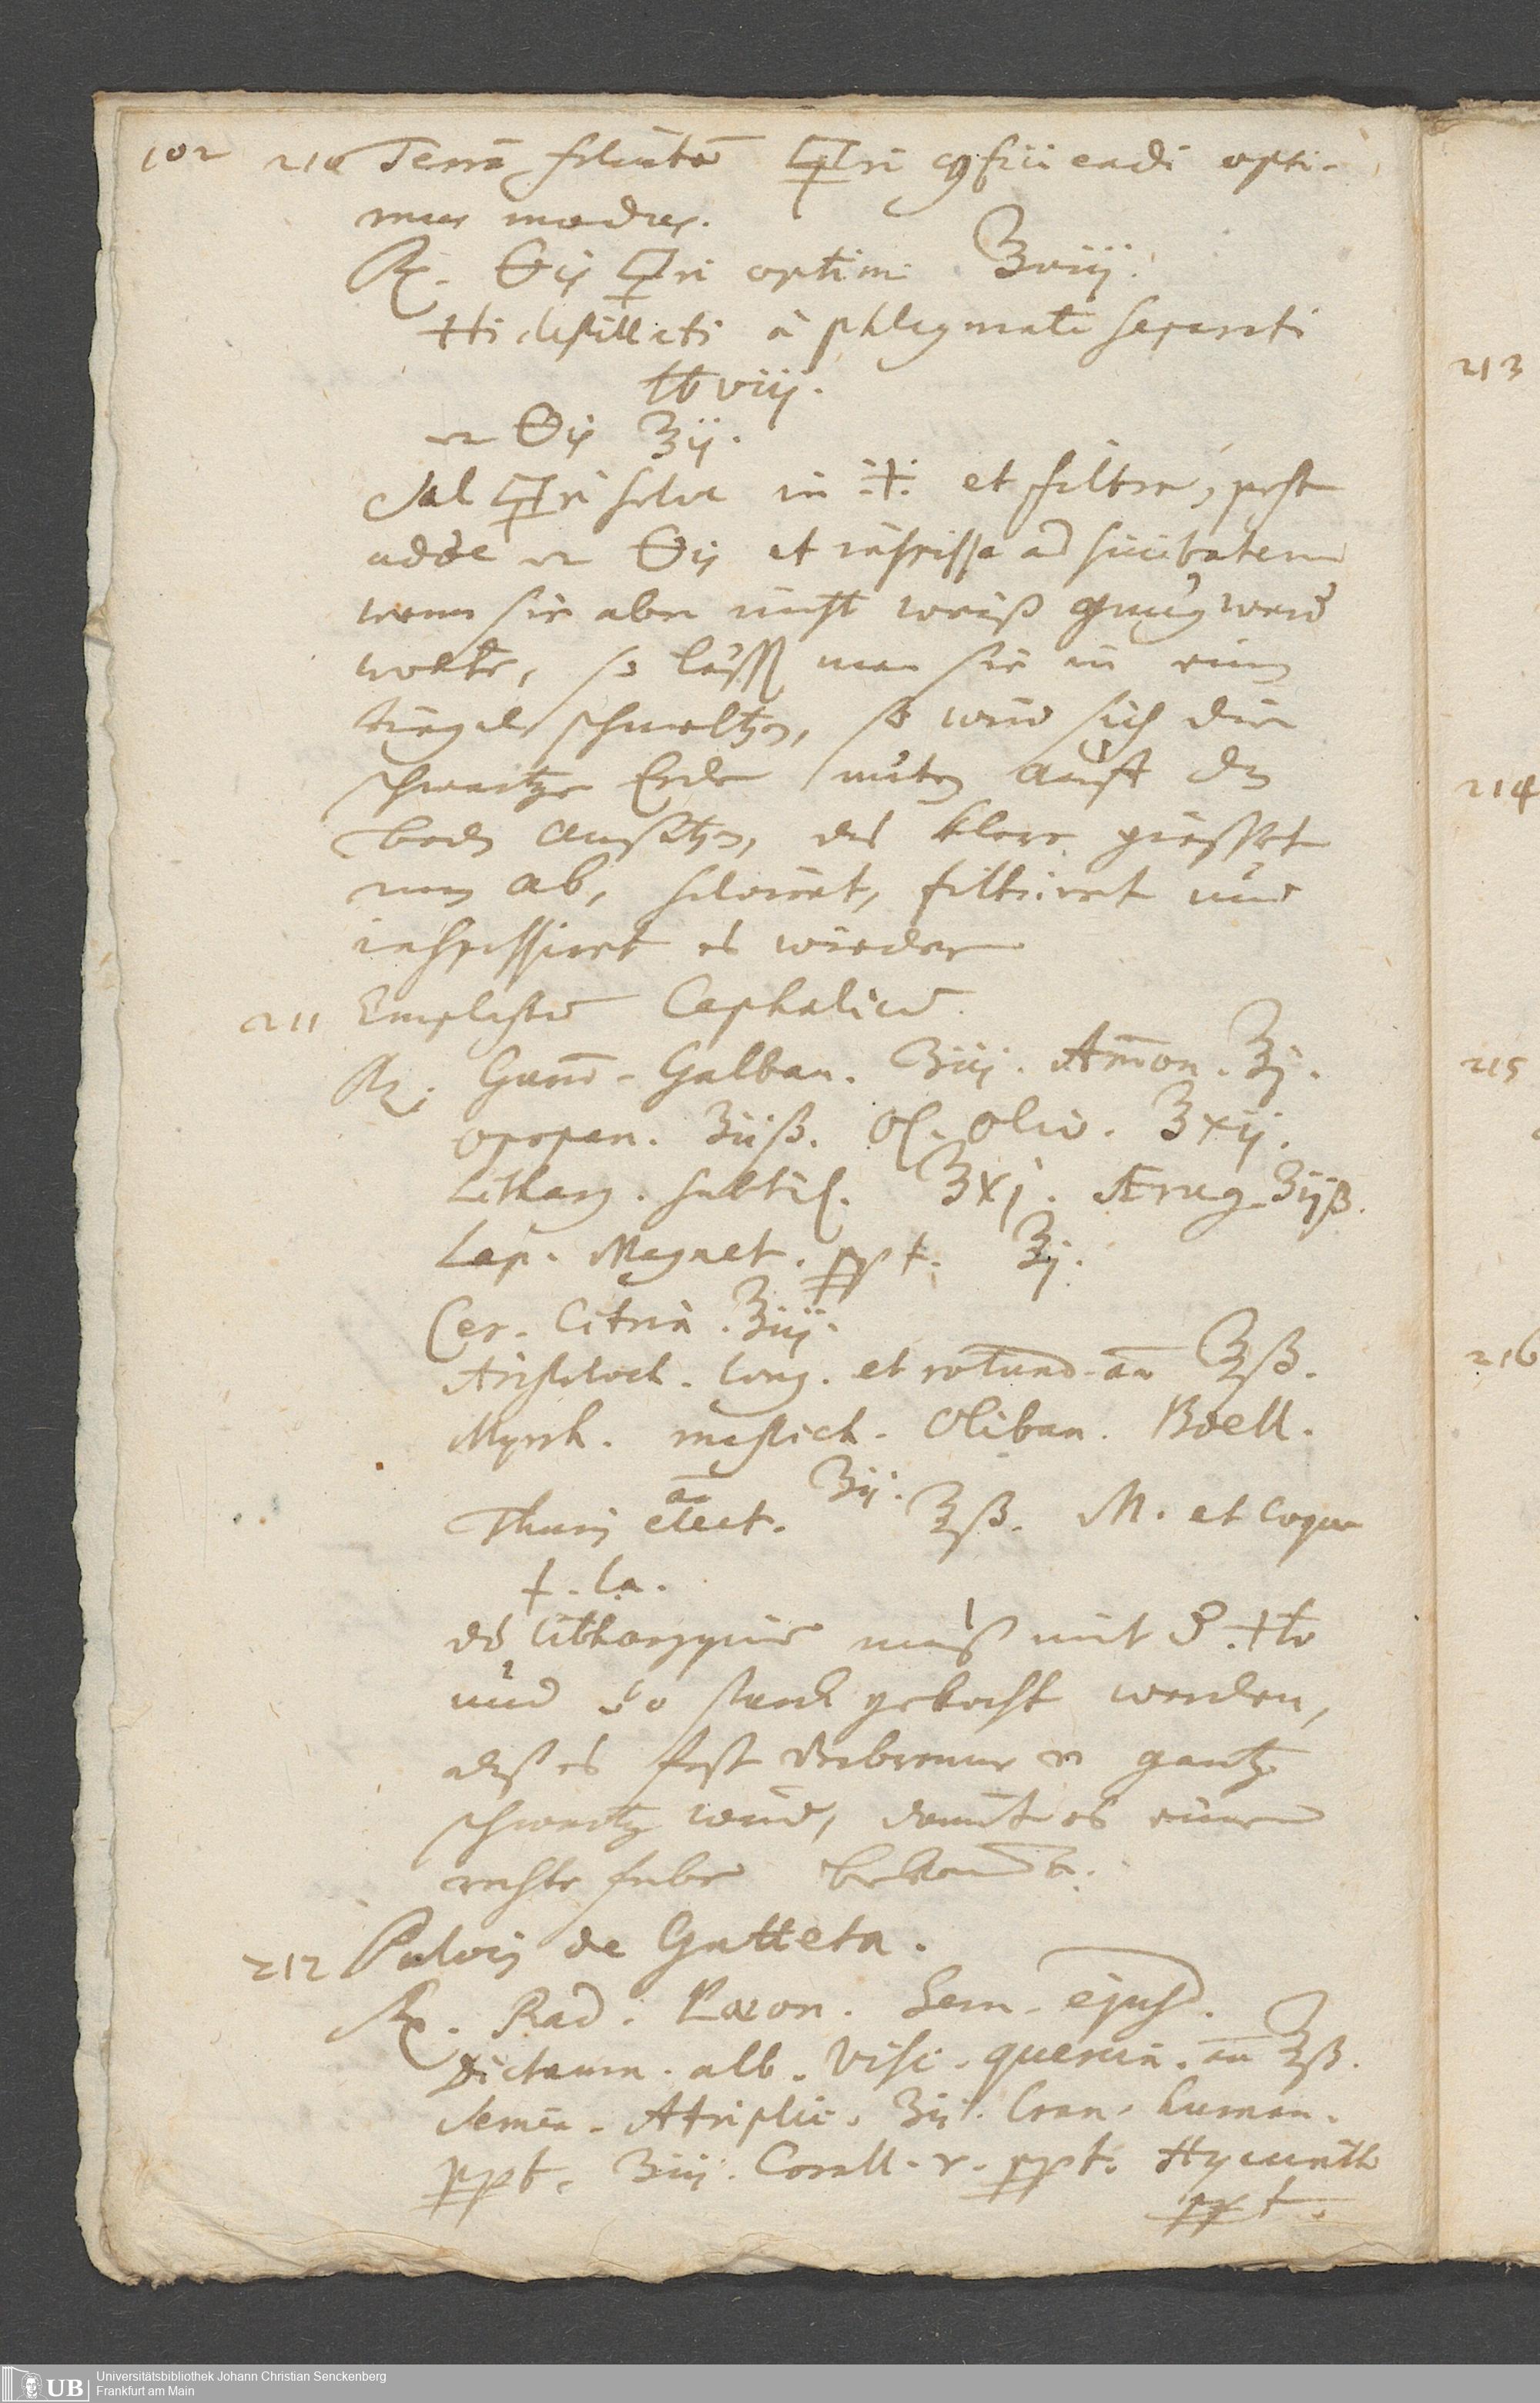 102 210 Terra foliata 🜿ri conficiendi opti-
mus modus.
℞. 🜔is 🜿ri optimi ℥viij.
🜊ti destillati à phlegmate separati
℔ viij.
🜔is ʒij.
Sal 🜿ri solve in 🜊 et filtra, post
adde 🜔is et inspissa ad siccitatem
wenn sie aber nicht weiß gnug werd
wolte, so lässt man sie in einem
tiegel schmeltzen, so wird sich die
schwartze Erde unten auff den
boden ansetzen, das klare giesset
man ab, solvirt, filtrirt und
inspissirt es wieder
211 Emplastrum Cephalicum.
℞. Gummi Galban. ℥iij. Ammon. ℥j.
Opopan. ℥iiß. Ol. Oliv. ℥xij.
Litharg. subtil. ℥xj. Ærug. ℥ijß.
Lap. Magnet. ppt. ℥j.
Cer. Citrin. ℥iij.
Aristoloch. long. et rotund. an ℥ß.
Myrrh. mastich. Oliban. Bdell.
an ʒij.
Thuris elect. ℥ß. M. et coque
f. l. a.
das Lithargyrium muß mit
und so starck gekocht werden,
daß es fast verbrenne u gantz
schwartz wird, damit es eine
rechte farbe bekombt.
212 Pulvis de Gutteta.
℞. Rad. Pæon. Sem. ejusd.
Dictamn. alb. Visci. quercin. an ℥ß.
Semin. Atriplic. ʒij. Cran. human.
ppt. ʒiij. Corall. r. ppt. Hyacinth
ppt.
213
214
215
216
UB Universitätsbibliothek Johann Christian Senckenberg
Frankfurt am Main